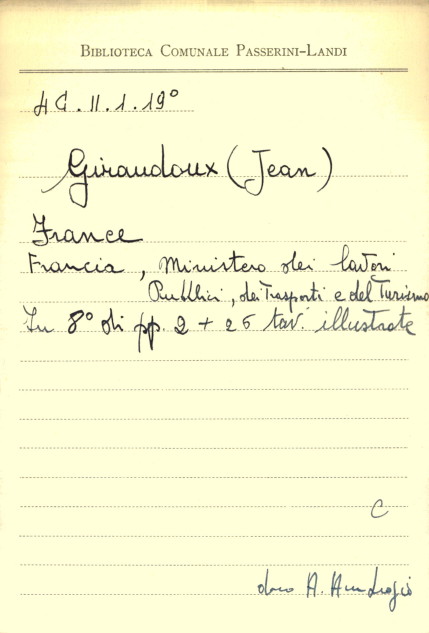 BIBLIOTECA COMUNALE PASSERINI-LANDI
4C.II.1.19°
Giraudoux (Jean)
France
Francia, Ministero dei lavori
Pubblici, dei Trasporti e del Turismo
In 8° di pp. 2 + 26 tav. illustrate
C
dono A. Ambrogio